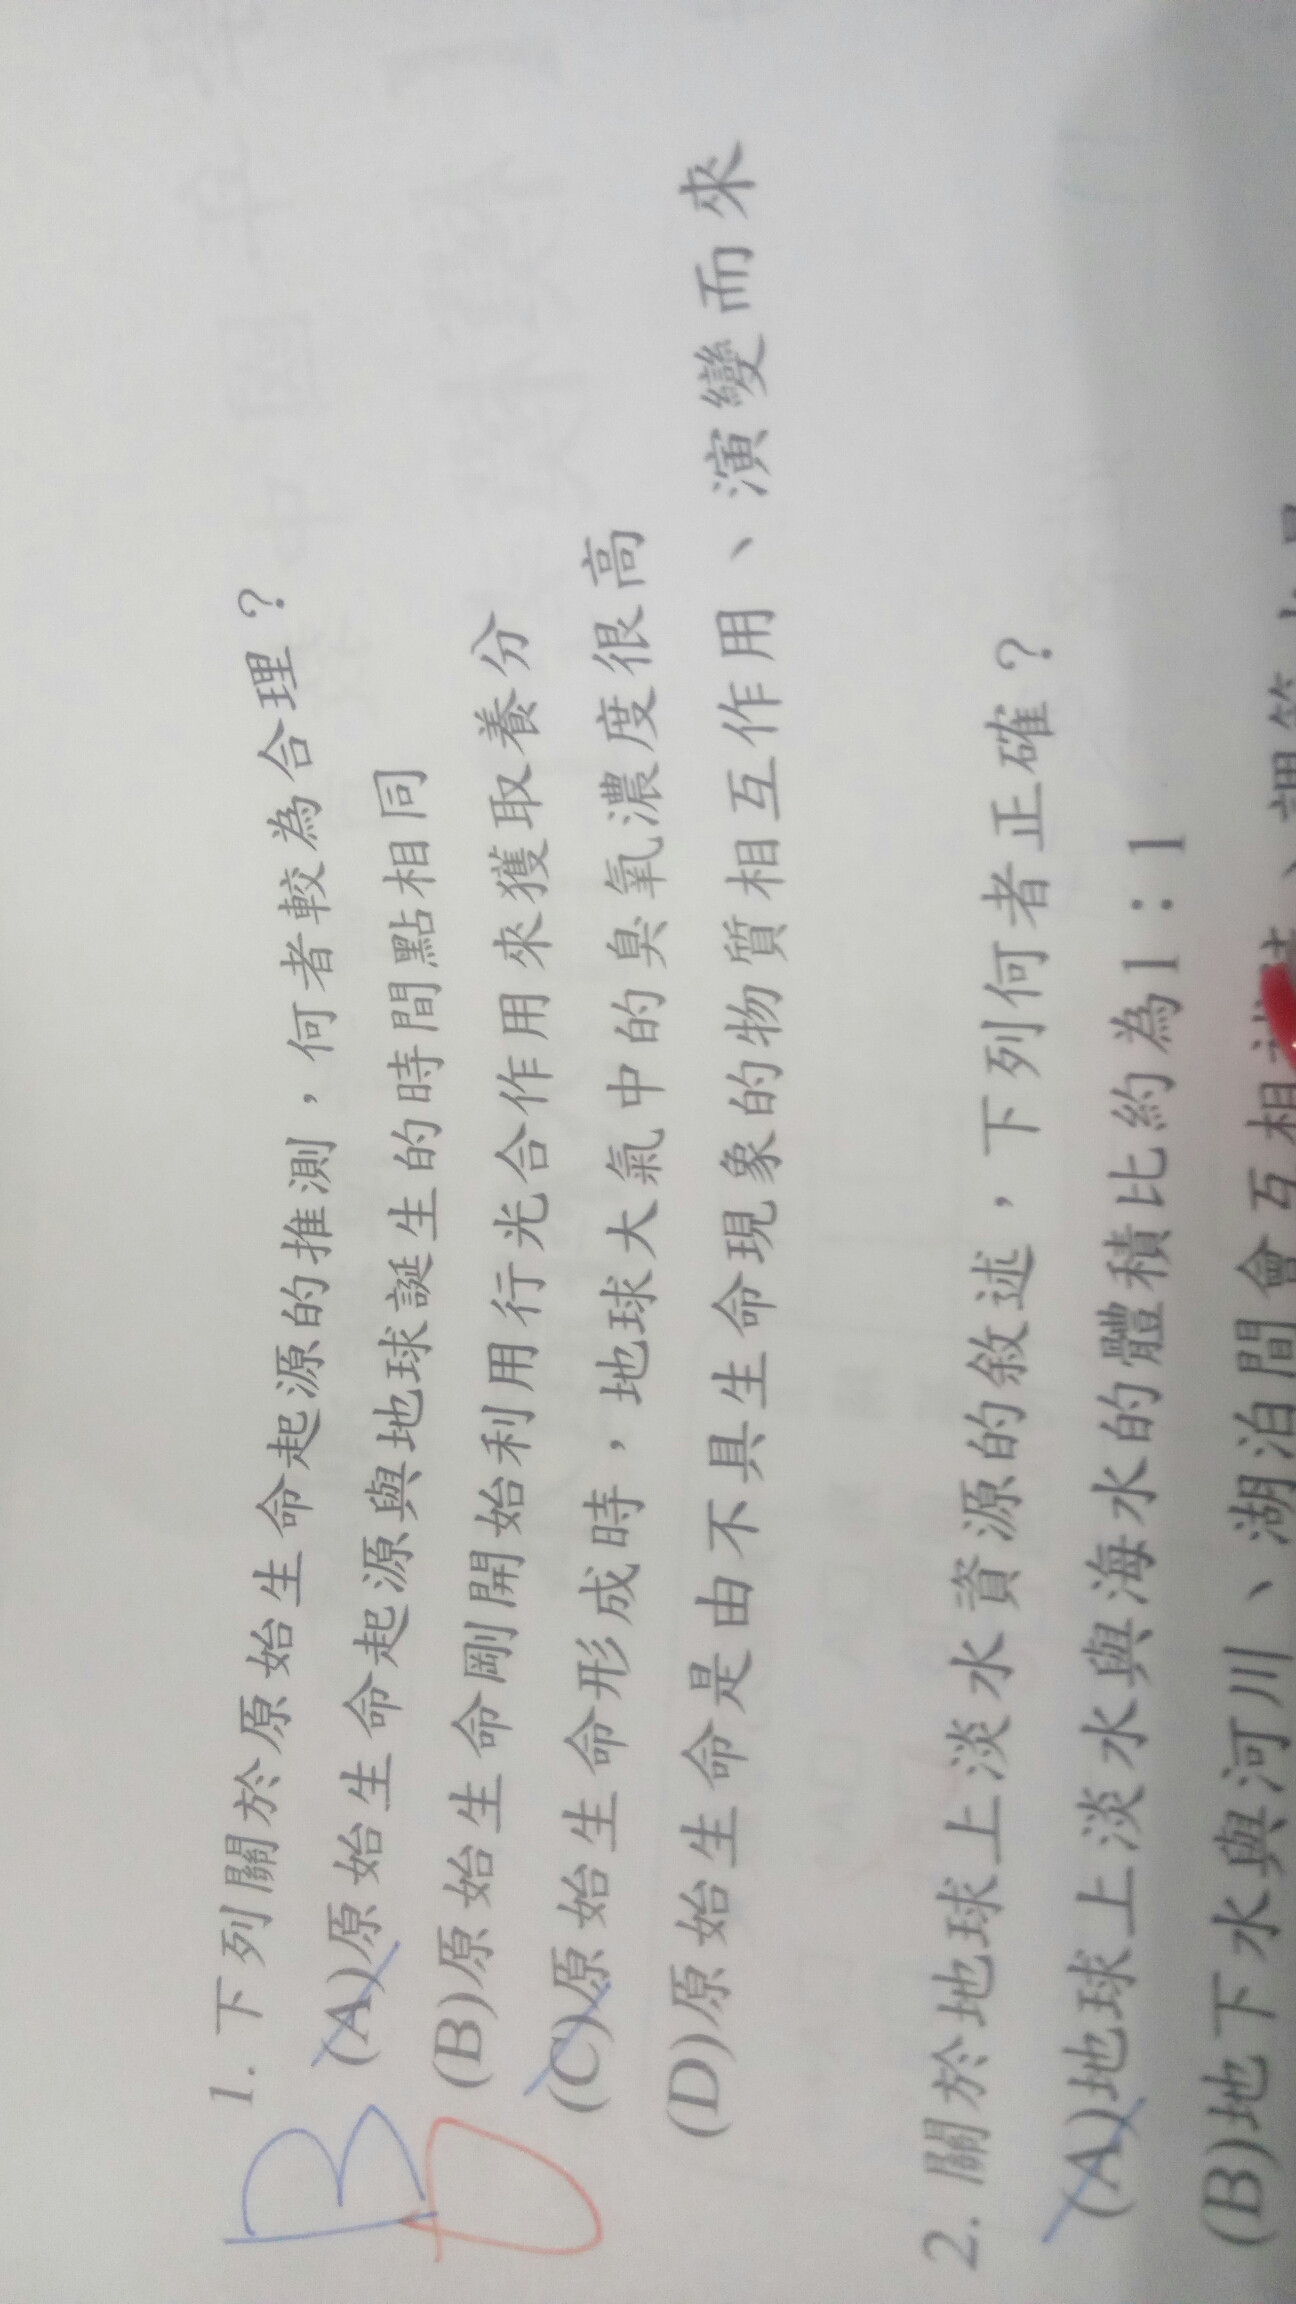 1. 下列關於原始生命起源的推測，何者較為合理？
(A)原始生命起源與地球誕生的時間點相同
B
(B)原始生命剛開始利用行光合作用來獲取養分
D
(C)原始生命形成時，地球大氣中的臭氧濃度很高
(D)原始生命是由不具生命現象的物質相互作用、演變而來
2. 關於地球上淡水資源的敘述，下列何者正確？
(A)地球上淡水與海水的體積比約為1：1
(B)地下水與河川、湖泊間會互相